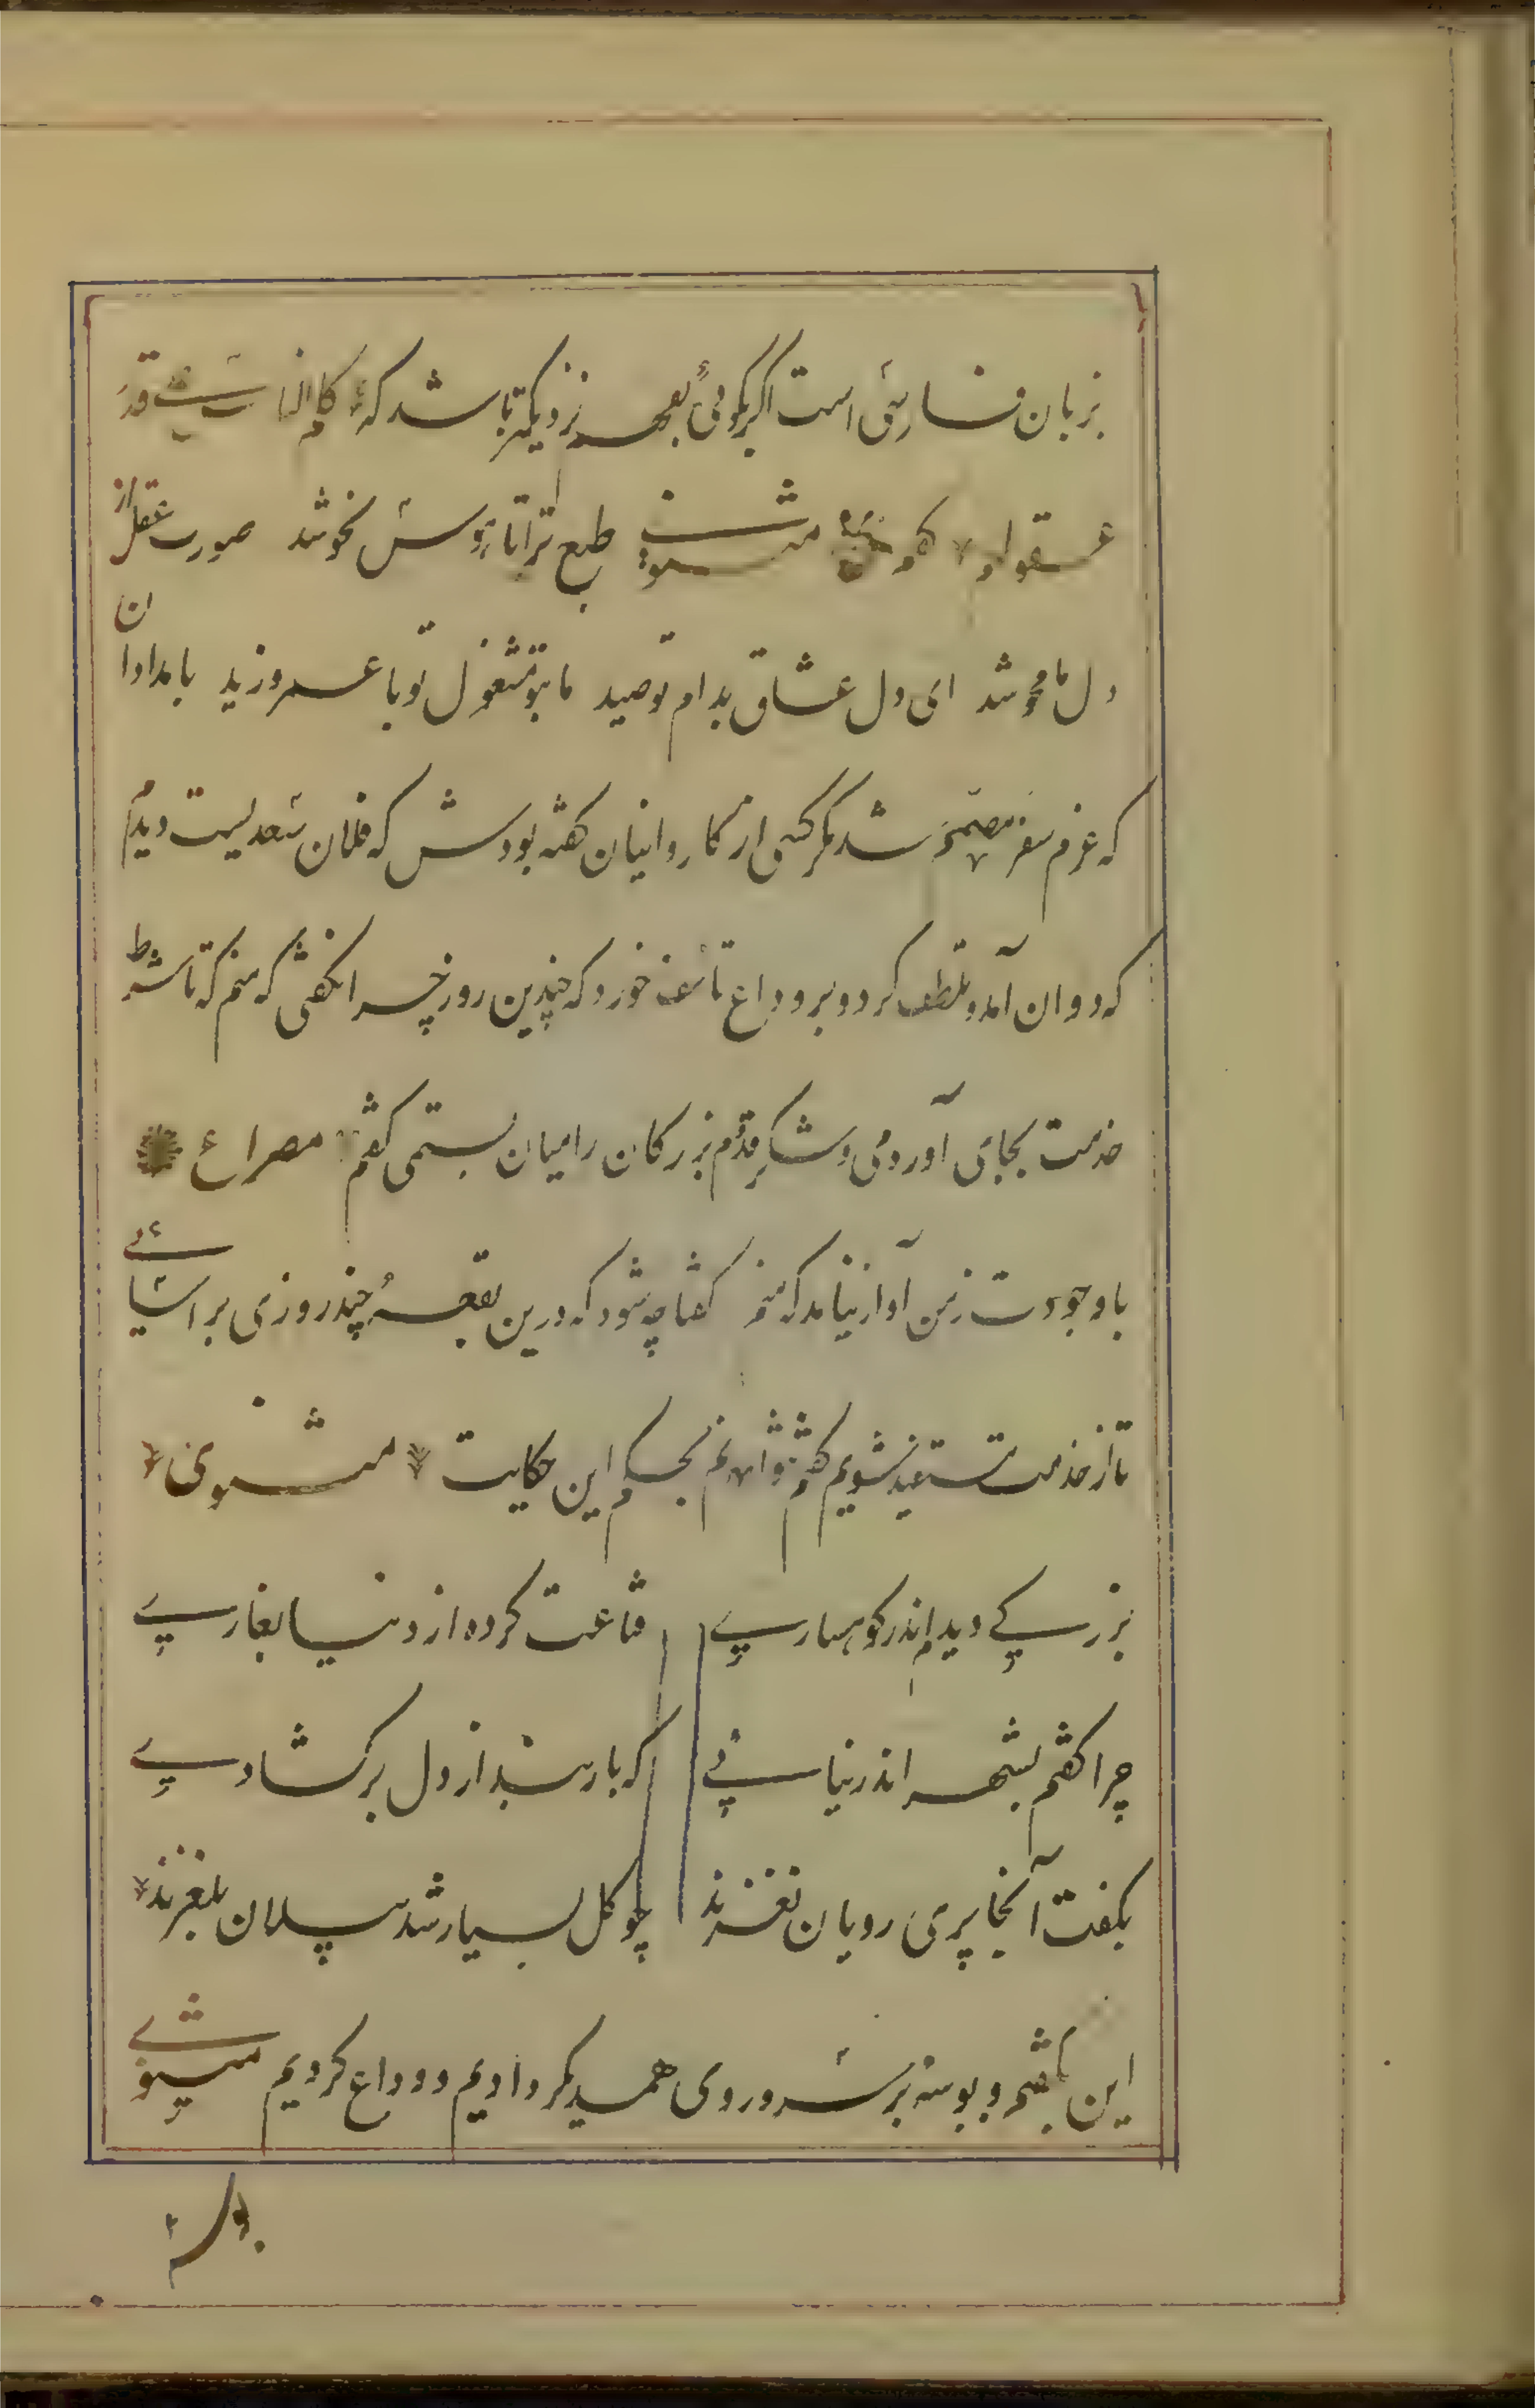 بزبان فارسی است اکر بکوئی بفهم نزدیکتر باشد که کلم الناس علی قدر
عقولهم کفتم مثنوی طبع ترا تا هوس نحو شد صورت عقل از
دل ما محو شد ای دل عشاق بدام تو صید ما بتو مشغول تو با عمرو زید بامدادان
که عزم سفر مصمم شد مکر کسی از کاروانیان کفته بودش که فلان سعدیست دیدم
که دوان آمد و تلطف کرد و بر وداع تاسف خورد که چندین روز چرا نکفتی که منم که تا شرط
خدمت بجای آوردمی و شکر قدم بزرکان را میان بستمی کفتم مصراع
با وجودت ز من آواز نیامد که منم کفتا چه شود که درین بقعه چند روزی بر آسائی
تا از خدمت مستفید شویم کفتم نتوانم بحکم این حکایت مثنوی
بزرکے دیدم اندر کوہسارے قناعت کردہ از دنیا بغارے
چرا کفتم بشهر اندر نیائی کہ بارے بند از دل برکشادے
بکفت آنجا پری رویان نغزند چو کل بسیار شد پیلان بلغزند
این بکفتم و بوسه بر سر و روی همدیکر دادیم و وداع کردیم مثنوے